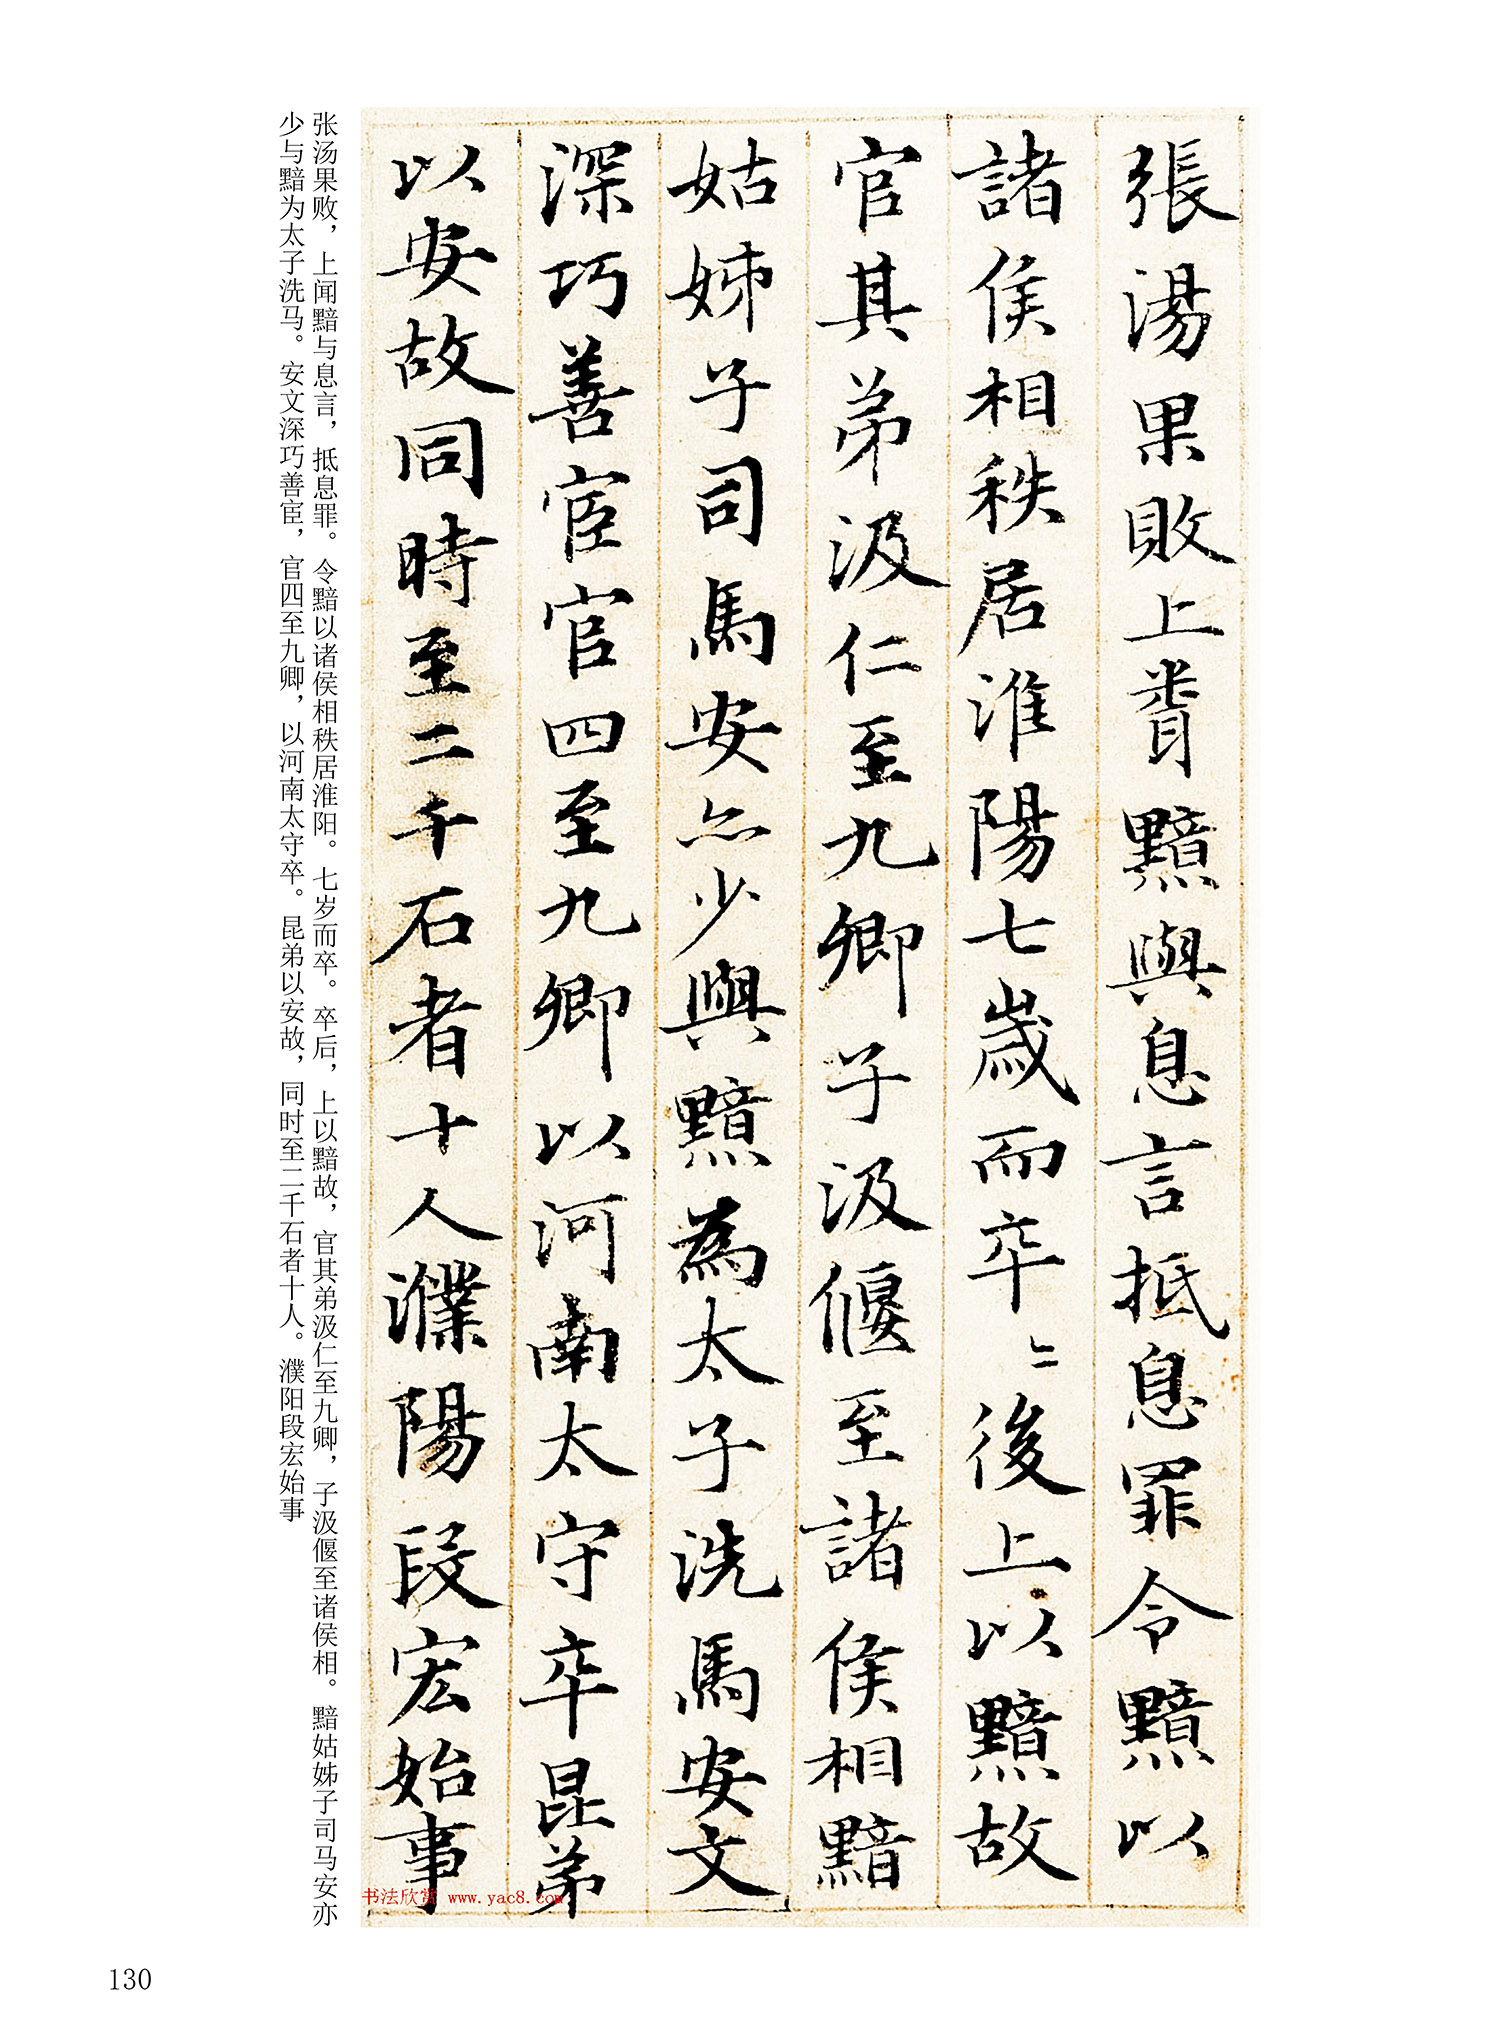 張湯果敗上聞黯與息言抵息罪令黯以
諸侯相秩居淮陽七歲而卒〻後上以黯故
官其弟汲仁至九卿子汲偃至諸侯相黯
姑姊子司馬安亦少與黯為太子洗馬安文
深巧善宦官四至九卿以河南太守卒昆弟
以安故同時至二千石者十人濮陽段宏始事
书法欣赏 www.yac8.com
张汤果败，上闻黯与息言，抵息罪。令黯以诸侯相秩居淮阳。七岁而卒。卒后，上以黯故，官其弟汲仁至九卿，子汲偃至诸侯相。黯姑姊子司马安亦
少与黯为太子洗马。安文深巧善宦，官四至九卿，以河南太守卒。昆弟以安故，同时至二千石者十人。濮阳段宏始事
130